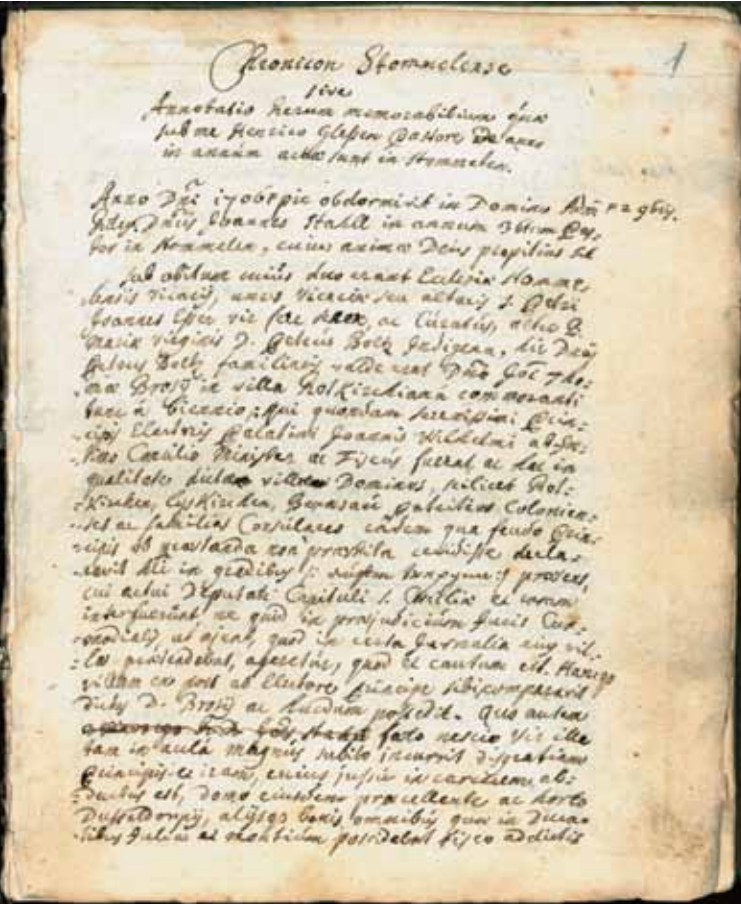 Chronicon Stommelense
1
sive
Annotatio rerum memorabilium quae
sub me Henrico Glessen Pastore de anno
in annum acta sunt in Stommelen.
Anno Dni 1706 pie obdormivit in Domino 9bris.
Dnus Joannes Stahll in annum Pas-
tor in Stommelen, cuius animae Deus propitius sit
sub obitum cuius duo erant Ecclesiae Stomme-
lensis vicarii, unus vicariae seu altaris S. Petri
Joannes Esser vir, ac Curatus, altero B.
Mariae virginis D. Petrus Boltz Indigena, hic Dnus
Petrus Boltz familiaris valde erat Dno Tho-
mae Brosy in villa Holkirchiana commoranti
tunc a biennio, qui quondam serenissimi Prin-
cipis Electoris Palatini Joannis Wilhelmi ab in-
timo Consilio Minister ac Fiscus fuerat ac hac in
qualitate dictam villam Dominos, scilicet Hol-
kirchen, Lyskirchen, patritios Colonien-
ses ac familias Consulares eadem qua feudo Prin-
cipis ob praestanda non praestita cecidisse decla-
ravit in aedibus
cui actui Deputati Capituli S. Caeciliae et coram
interfuerunt, ne quid in praejudicium Juris Cur-
modialis, ut ajunt, quod in certa Jurnalia eius vil-
lae praetendebat, ageretur, quod et cautum est. Hancqe
villam post ab Electore Principe sibi comparavit
dictus D. Brosy ac possedit. Quo autem
fato nescio vir ille
tam in aula magnus subito incurrit disgratiam
Principis et iram, cuius jussu in carcerem ab-
ductus est, domo eiusdem praecellente ac horto
Dusseldorpy, alysqe bonis omnibus quae in Duca-
tibus Juliae ac montium possidebat fisco addictis